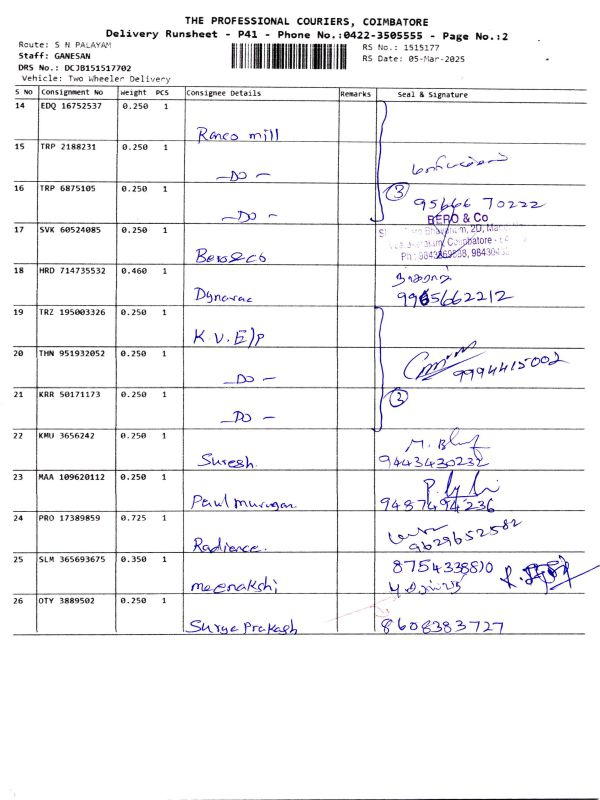 THE PROFESSIONAL COURIERS, COIMBATORE
Delivery Runsheet - P41 - Phone No.:0422-3505555 - Page No.:2
Route: S N PALAYAM
RS No.: 1515177
Staff: GANESAN
RS Date: 05-Mar-2025
DRS No.: DCJB151517702
Vehicle: Two Wheeler Delivery
S No Consignment No Weight PCS Consignee Details Remarks Seal & Signature
14 EDQ 16752537 0.250 1
Ranco mill
15 TRP 2188231 0.250 1
—DO —
16 TRP 6875105 0.250 1
③ 95666 70222
—DO —
BERO & Co
17 SVK 60524085 0.250 1
2D,
Coimbatore -
Bero & Co
18 HRD 714735532 0.460 1
Dynavac 9965662212
19 TRZ 195003326 0.250 1
K.V.E/P
20 THN 951932052 0.250 1
9994415002
—DO —
21 KRR 50171173 0.250 1
③
—DO —
22 KMU 3656242 0.250 1
Suresh. 9443430232
23 MAA 109620112 0.250 1
Paul murugan 9487494236
24 PRO 17389859 0.725 1
9629652582
Radiance.
25 SLM 365693675 0.350 1
8754338810
meenakshi
26 OTY 3889502 0.250 1
Surya Prakash 8608383727